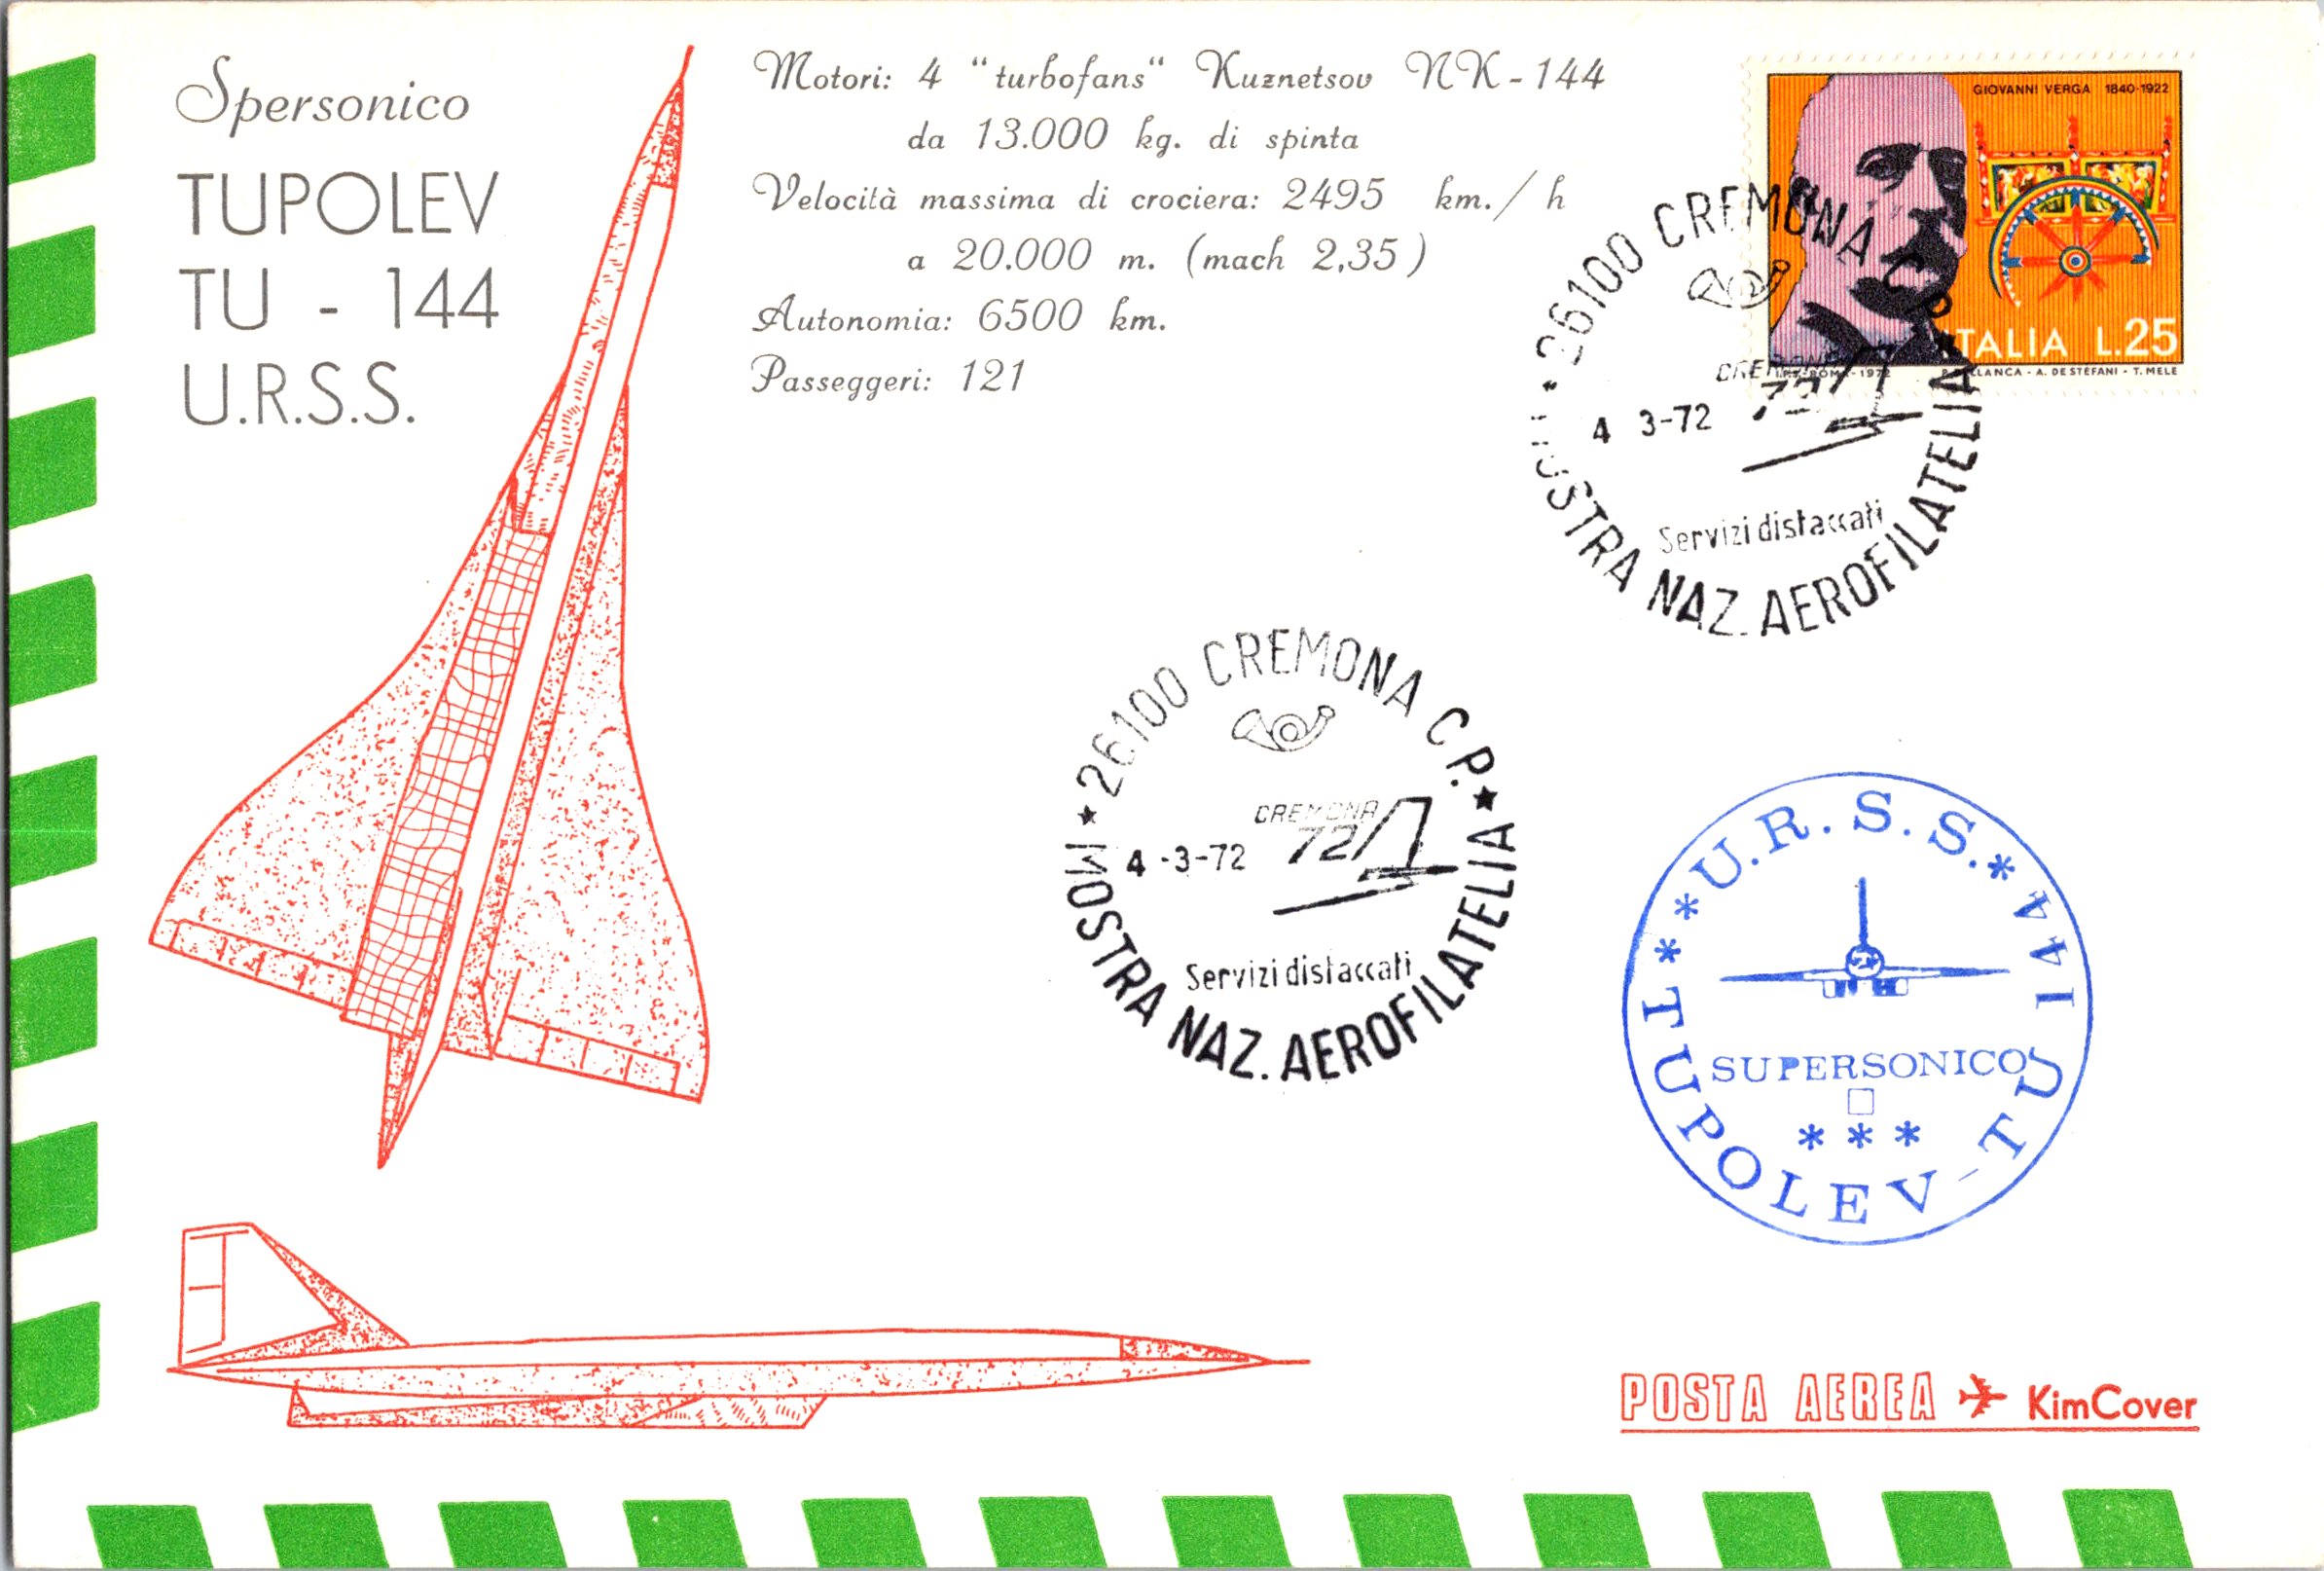 Spersonico
TUPOLEV
TU - 144
U.R.S.S.
Motori: 4 "turbofans" Kuznetsov NK-144
da 13.000 kg. di spinta
Velocità massima di crociera: 2495 km./h
a 20.000 m. (mach 2,35)
Autonomia: 6500 km.
Passeggeri: 121
GIOVANNI VERGA 1840-1922
ITALIA L.25
I.P.S.-ROMA-1972 - A. DE STEFANI - T. MELE
26100 CREMONA C.P.
CREMONA
72
4 3-72
Servizi distaccati
MOSTRA NAZ. AEROFILATELIA
26100 CREMONA C.P.
CREMONA
72
4 -3-72
Servizi distaccati
MOSTRA NAZ. AEROFILATELIA
**U.R.S.S.*
TUPOLEV-TU 144
SUPERSONICO
***
POSTA AEREA KimCover